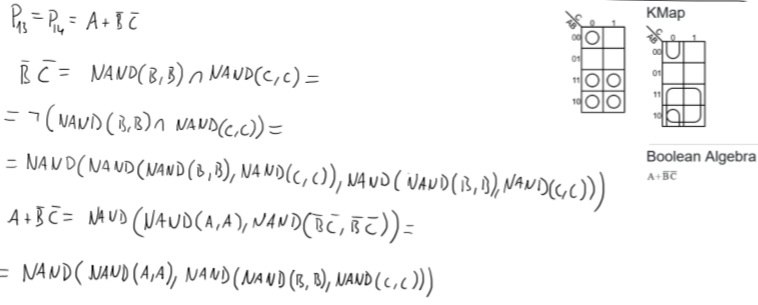 P₁₃ = P₁₄ = A + B̄ C̄
B̄ C̄ = NAND(B,B) ∩ NAND(C,C) =
= ¬(NAND(B,B) ∩ NAND(C,C)) =
= NAND(NAND(NAND(B,B), NAND(C,C)), NAND(NAND(B,B), NAND(C,C)))
A + B̄ C̄ = NAND(NAND(A,A), NAND(B̄C̄, B̄C̄)) =
= NAND(NAND(A,A), NAND(NAND(B,B), NAND(C,C)))
C
AB 0 1
00
01
11
10
KMap
C
AB 0 1
00
01
11
10
Boolean Algebra
A+B̄C̄